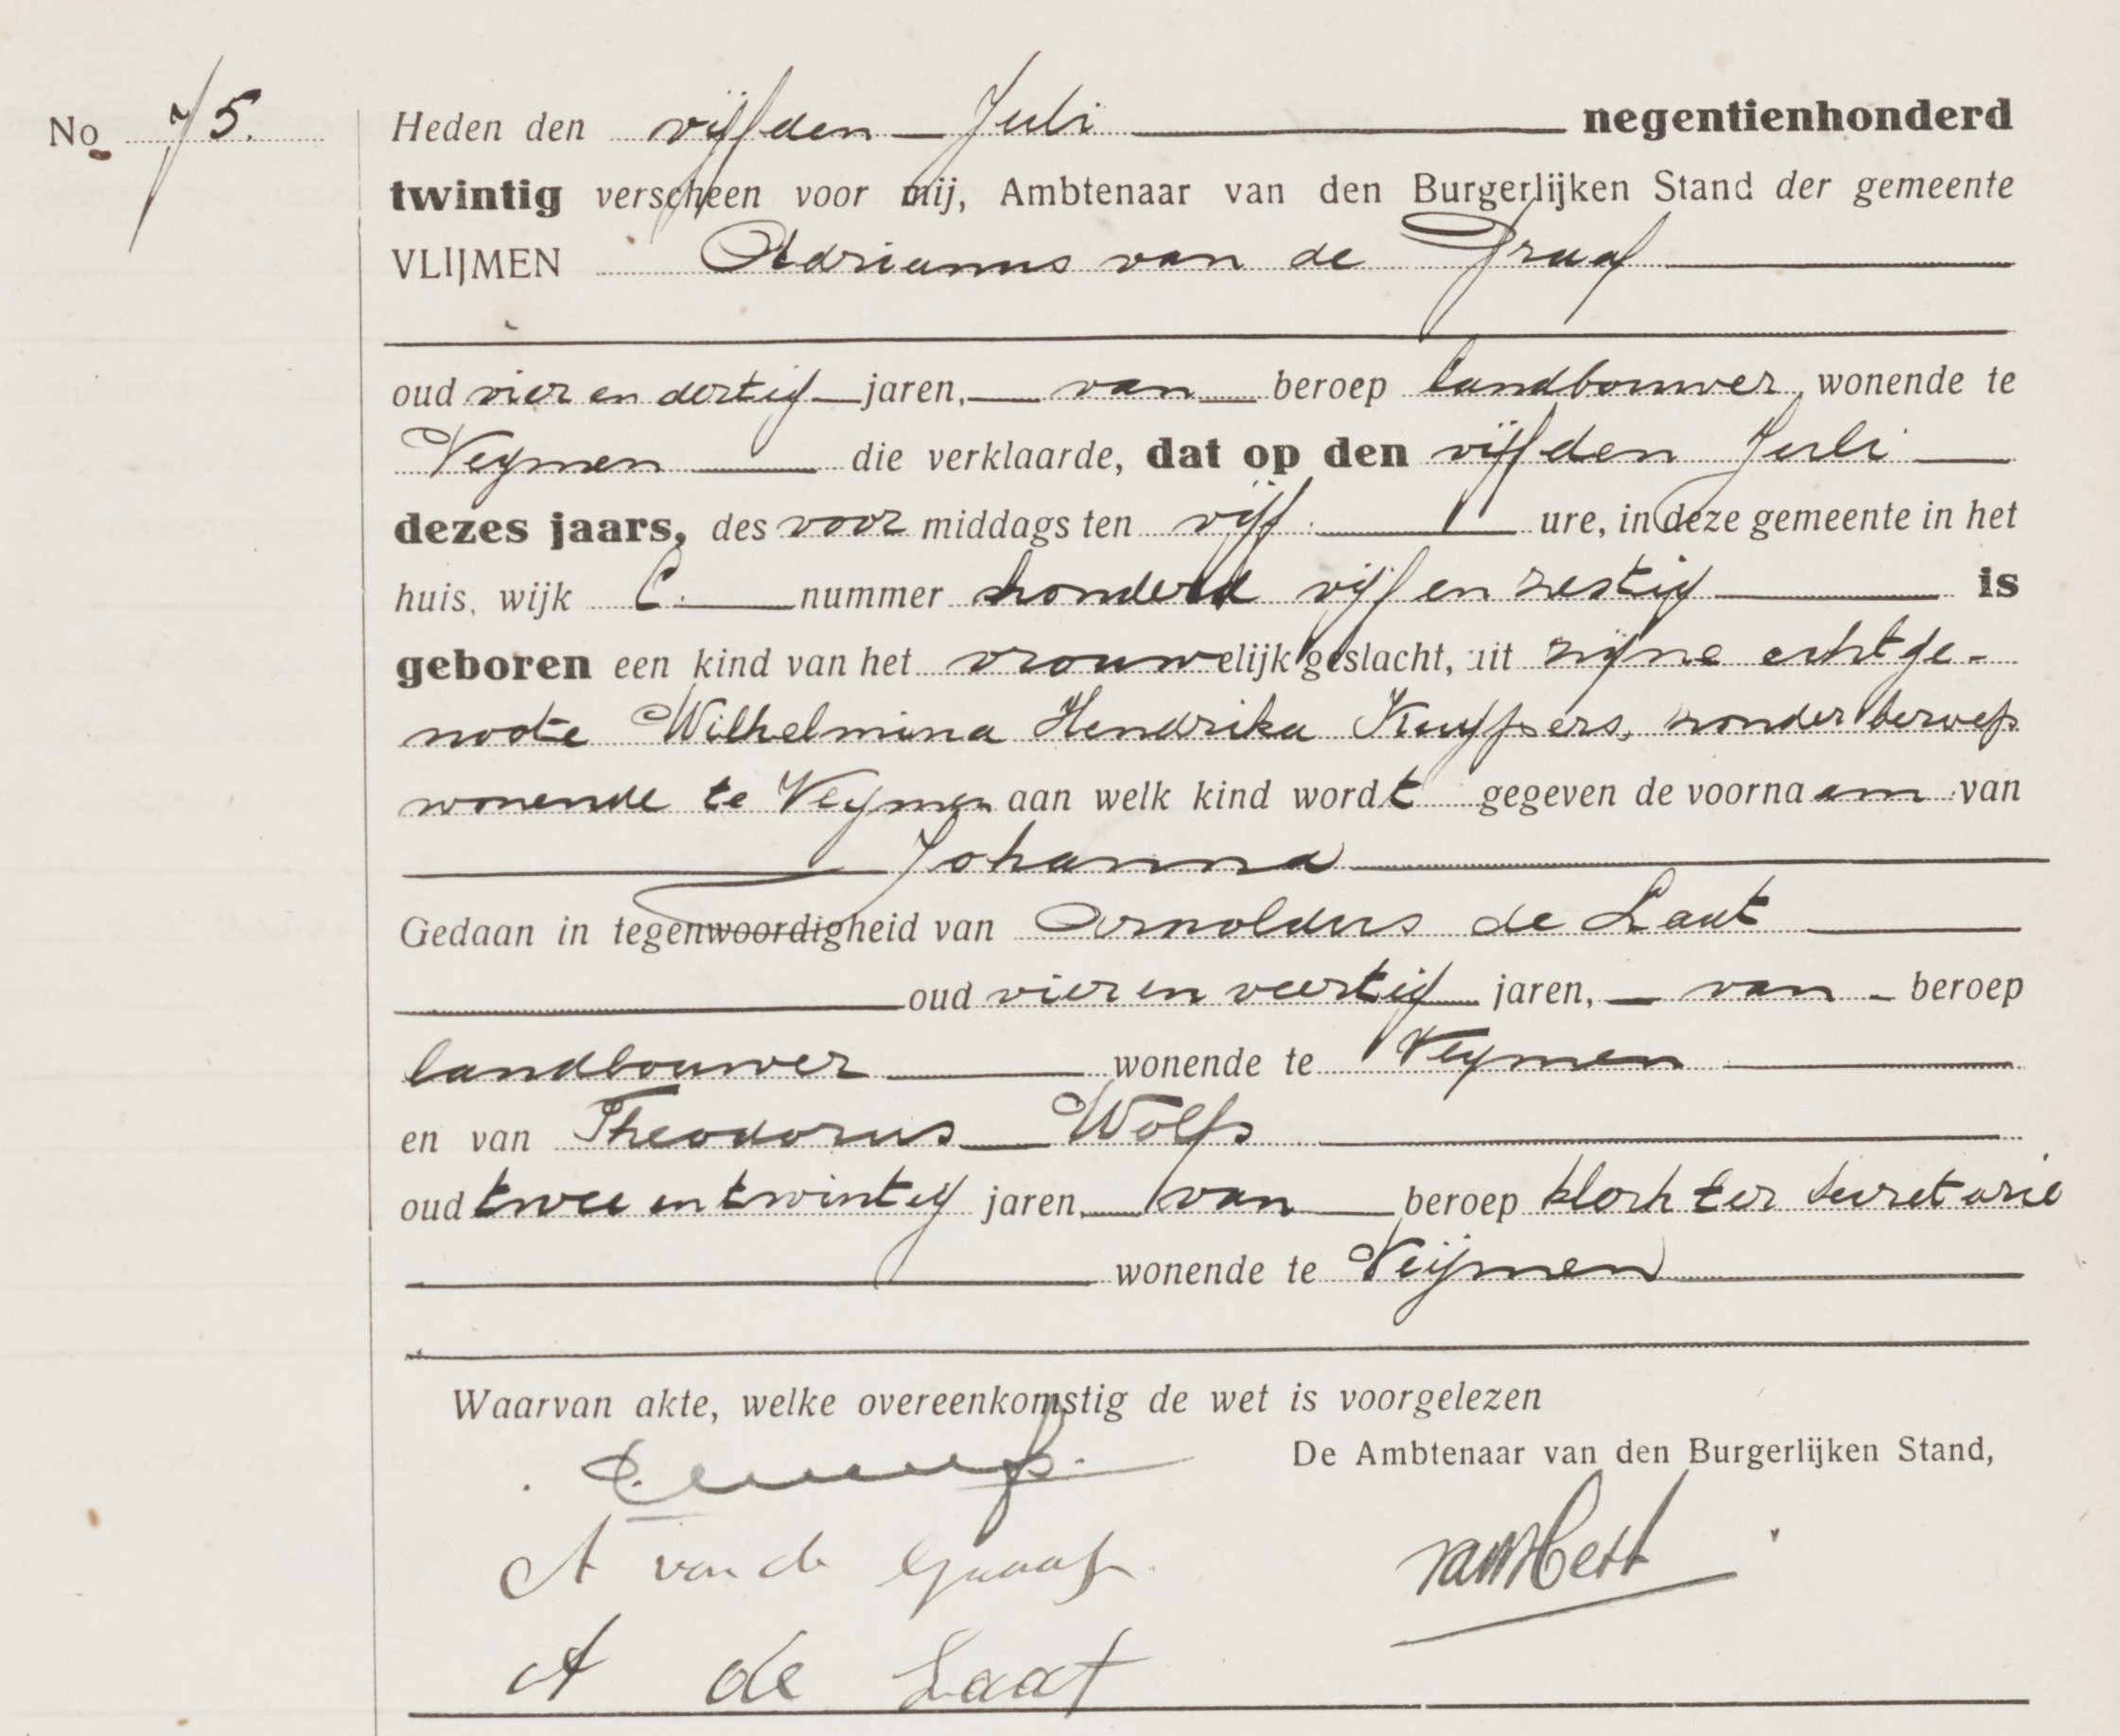 No 75.
Heden den vijfden Juli negentienhonderd
twintig verscheen voor mij, Ambtenaar van den Burgerlijken Stand der gemeente
VLIJMEN Adrianus van de Graaf
oud vier en dertig jaren, van beroep landbouwer, wonende te
Vlijmen die verklaarde, dat op den vijfden Juli
dezes jaars, des voor middags ten vijf ure, in deze gemeente in het
huis, wijk C. nummer honderd vijf en zestig is
geboren een kind van het vrouwelijk geslacht, uit zijne echtge-
noote Wilhelmina Hendrika Kuijpers, zonder beroep
wonende te Vlijmen aan welk kind wordt gegeven de voornaam van
Johanna
Gedaan in tegenwoordigheid van Arnoldus de Laat
oud vier en veertig jaren, van beroep
landbouwer wonende te Vlijmen
en van Theodorus Wolfs
oud twee en twintig jaren, van beroep klerk ter secretarie
wonende te Vlijmen
Waarvan akte, welke overeenkomstig de wet is voorgelezen
De Ambtenaar van den Burgerlijken Stand,
A van de Graaf
A de Laat